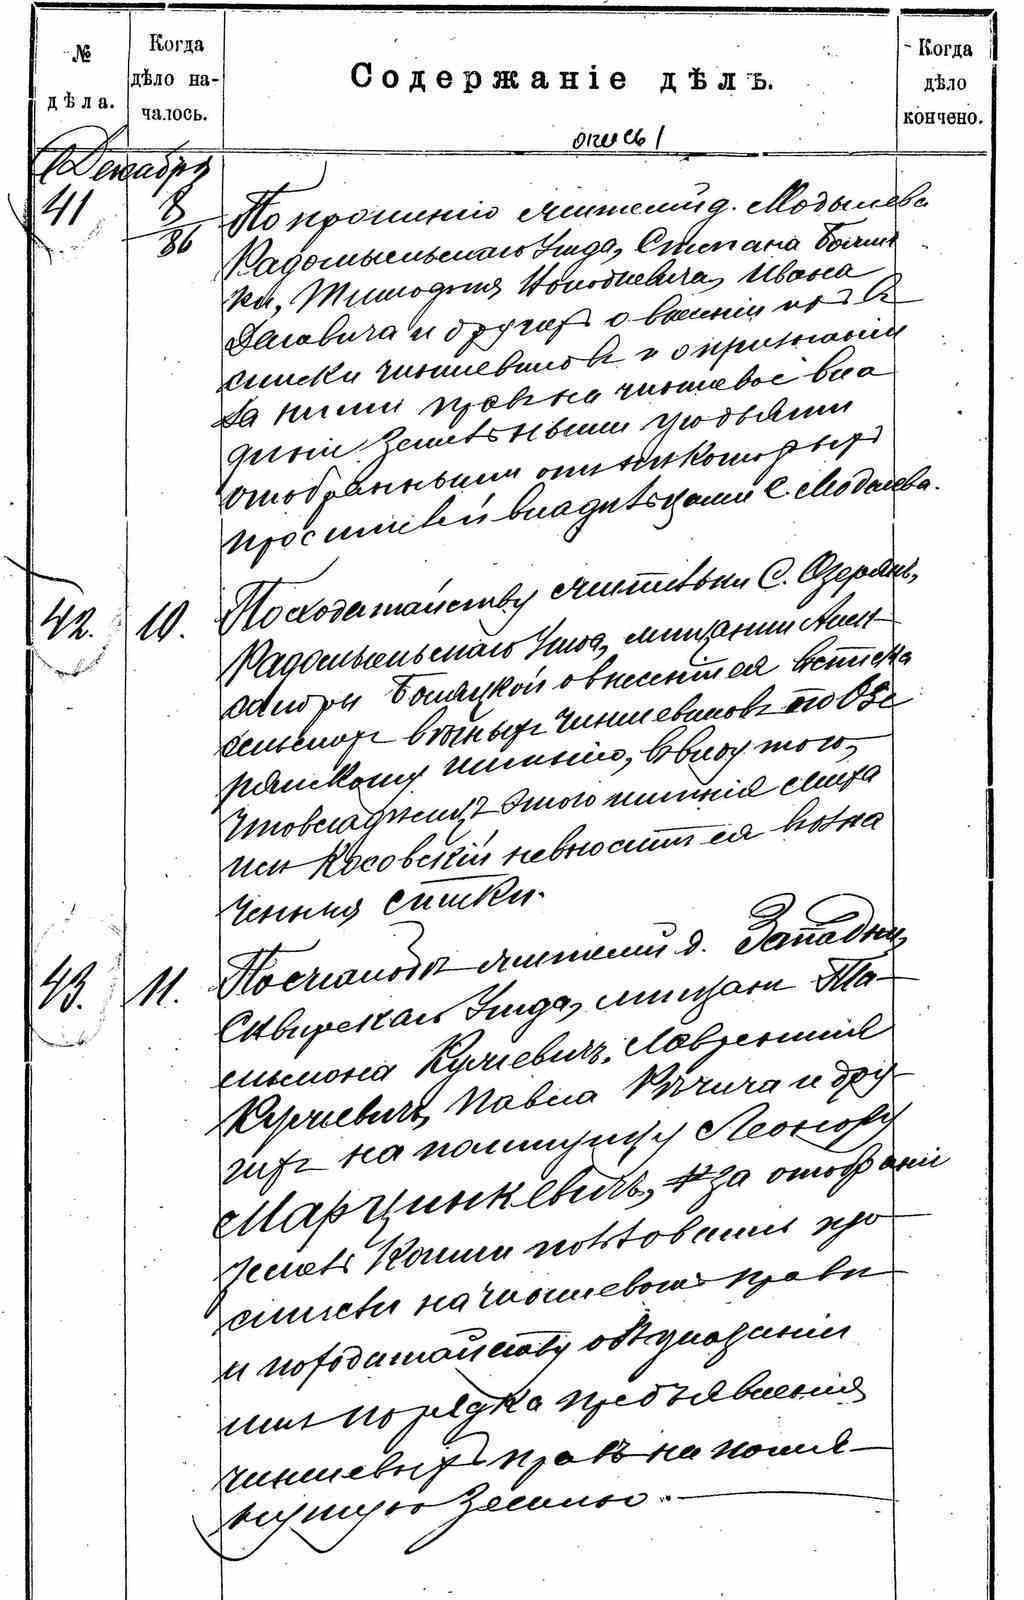 № дѣла.
Когда дѣло началось.
Содержаніе дѣлъ.
Когда дѣло кончено.
опись 1
Декабря
41
8/86
По прошенію жителей д. Модылева
Радомысльскаго Уѣзда, Степана
Ивана
и другихъ о внесеніи ихъ въ
списки чиншевиковъ и о признаніи
за ними правъ на чиншевое вла
дѣніе земельными угодьями
отобранными отъ нѣкоторыхъ
просителей владѣльцами с. Модылева.
42.
10.
По ходатайству жительки С. Озерянъ,
Радомысльскаго Уѣзда, мѣщанки Алек
сандры о внесеніи ея въ списки
сельскихъ вѣчныхъ чиншевиковъ по Озе
рянскому имѣнію, въ виду того,
что владѣлецъ этого имѣнія Миха
илъ Косовскій не вноситъ ея въ озна
ченные списки.
43.
11.
По жалобѣ жителей д. Западни,
Сквирскаго Уѣзда, мѣщанъ
Лаврентія
Павла и дру
гихъ на помѣщицу Леонору
Марцинкевичъ, за отобраніе
земель коими пользовались про
сители на чиншевомъ правѣ
и по ходатайству объ указаніи
имъ порядка предъявленія
чиншевыхъ правъ на помя
нутую землю.